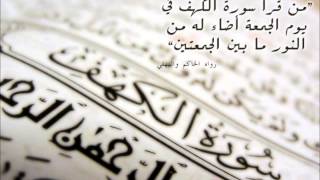 "من قرأ سورة الكهف في
يوم الجمعة أضاء له من
النور ما بين الجمعتين"
رواه الحاكم والبيهقي
سورة الكهف
الرحمن الرحيم